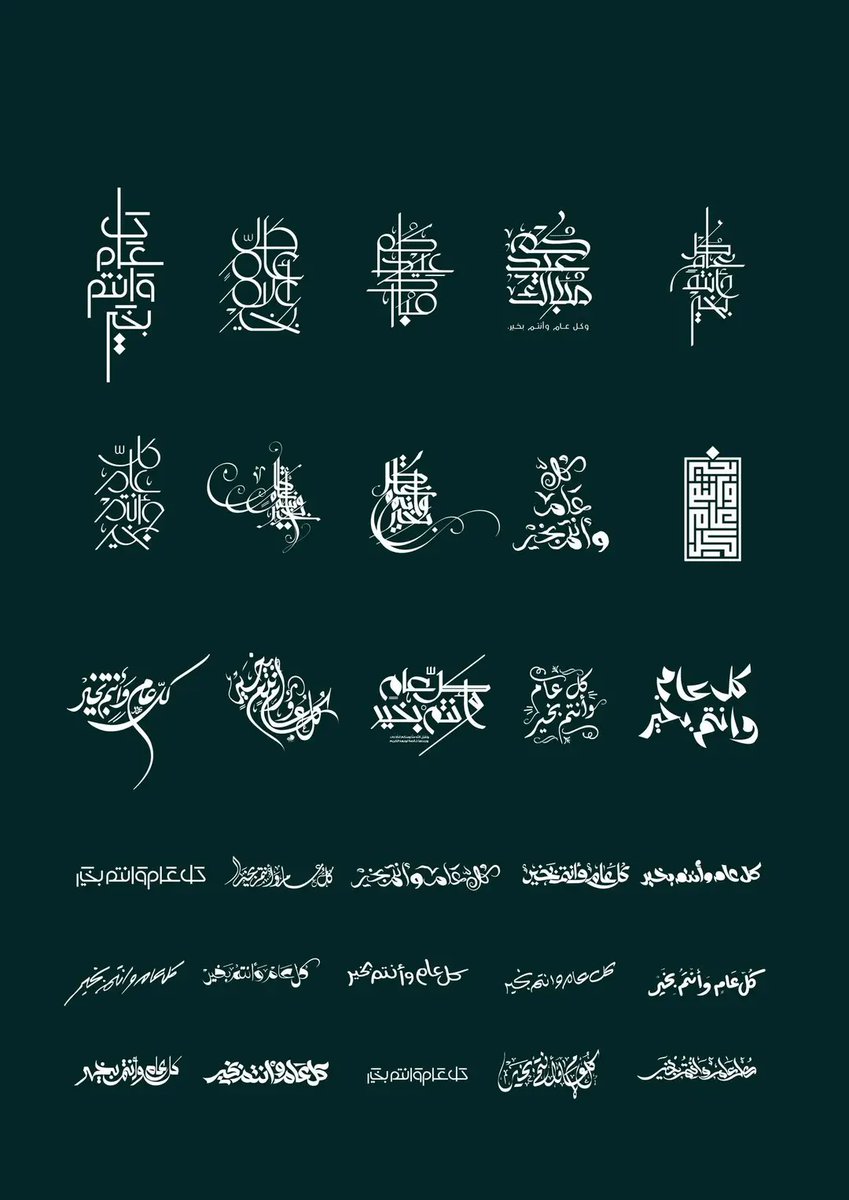 كل
عام
وأنتم
بخير
عيدكم
مبارك
وكل عام وأنتم بخير.
عيدكم
مبارك
كل
عام
وانتم
بخير
كل
عام
وانتم
بخير
كل
عام
وأنتم بخير
كل
عام
وانتم
بخير
كلّ
عام
وأنتم
بخير
كل عام
وانتم بخير
كل عام
وأنتم بخير
كلّ عام
وانتم بخير
كل عام وأنتم بخير
كلّ عام وأنتم بخير
كل عام وأنتم بخير
كُل عام وأنتم بخير
كل عام وأنتم بخير
كل عام وأنتم بخير
كل عام وانتم بخير
كُلّ عَام وَأنتُم بخَير
كل عام وانتم بخير
كل عام وأنتم بخير
كل عام وأنتُم بخَير
كل عام وانتم بخير
كل عام وأنتُم بخير
كل عام وأنتم بخير
كل عام وانتم بخير
كل عام وانتم بخير
كل عام وأنتم بخير